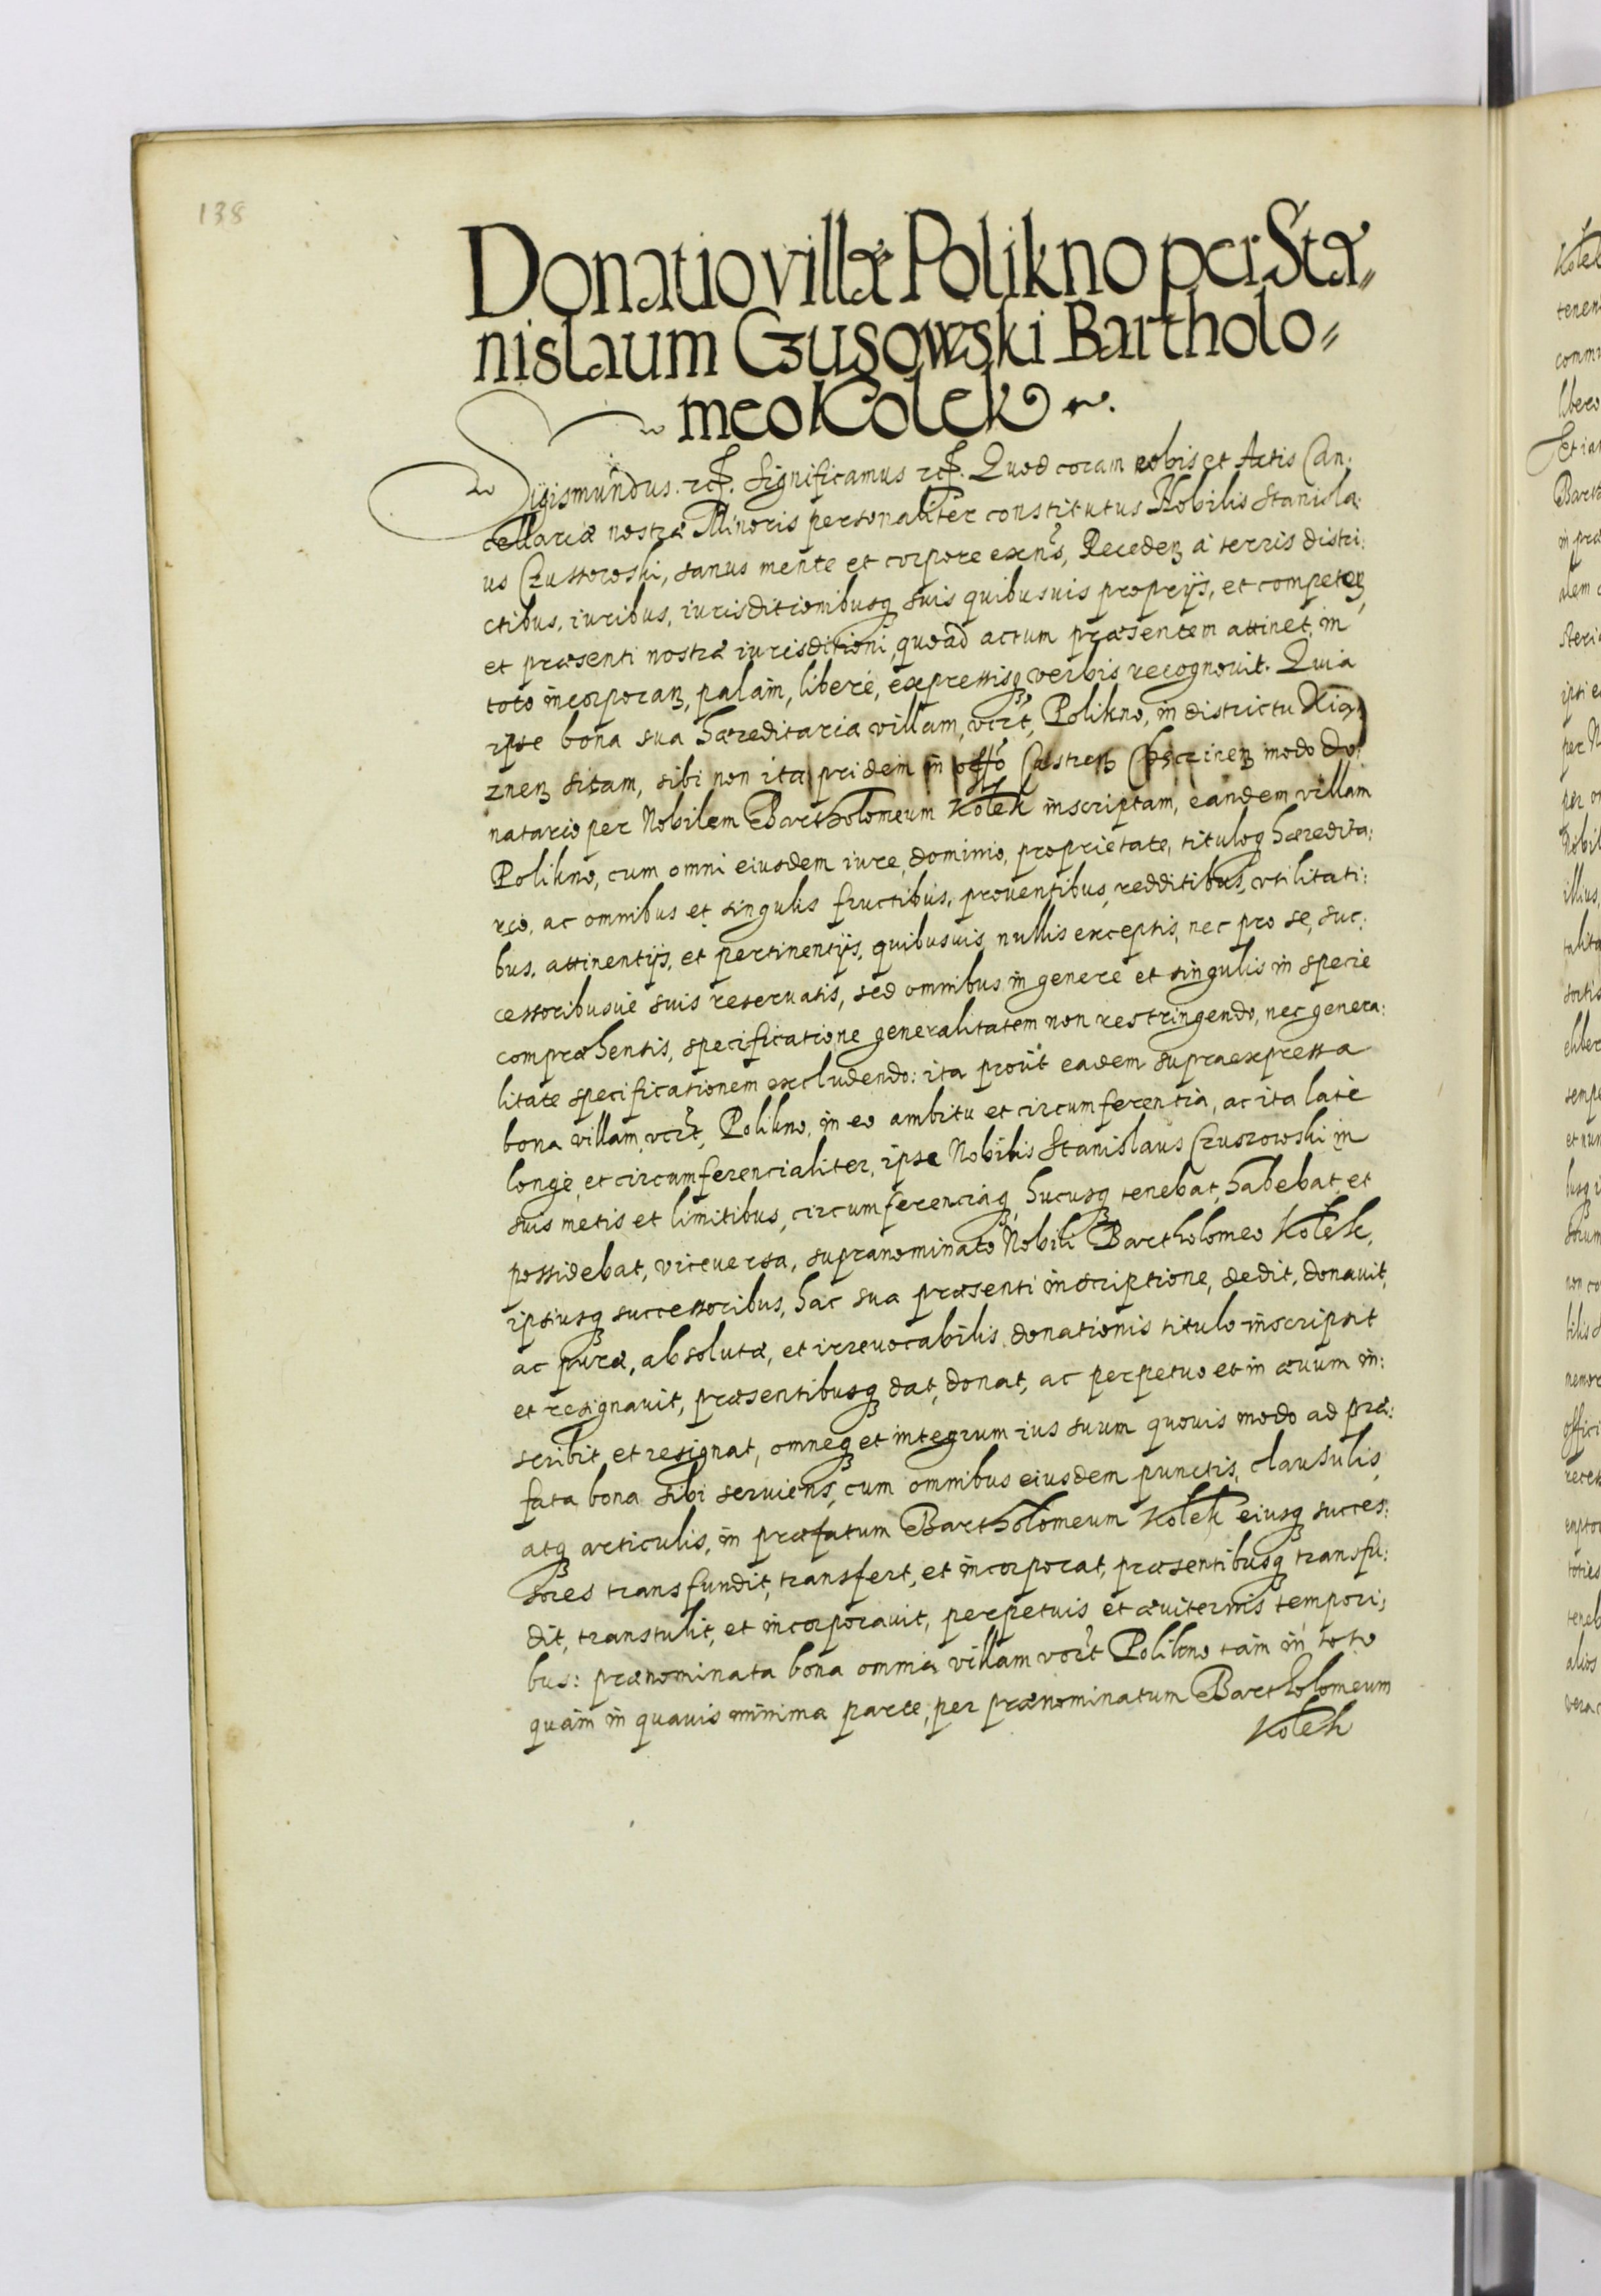 138
Donatio villæ Polikno per Sta=
nislaum Czusowski Bartholo=
meo Kolek
Sigismundus. etc. Significamus etc. Quod coram nobis et Actis Can:
cellariæ nostræ Minoris personaliter constitutus Nobilis Stanisla:
us Czussowski, sanus mente et corpore exn̄s, Recedenꝫ à terris distri:
ctibus, iuribus, iurisditionibusqꝫ suis quibusuis proprijs, et competenꝫ
et præsenti nostræ iurisditioni, quoad actum præsentem attinet, in
toto incorporanꝫ, palàm, liberè, expressisqꝫ verbis recognouit. Quia
ipse bona sua hæreditaria villam, vcrt, Polikno, in districtu
znenꝫ sitam, sibi non ita pridem in offo Castrenꝫ Checinenꝫ modo do:
natario per Nobilem Bartholomeum Kolek inscriptam, eandem villam
Polikno, cum omni eiusdem iure, dominio, proprietate, tituloqꝫ hæredita:
rio, ac omnibus et singulis fructibus, prouentibus, redditibus, vtilitati:
bus, attinentijs, et pertinentijs, quibusuis, nullis exceptis, nec pro se, suc:
cessoribusuè suis reseruatis, sed omnibus in genere et singulis in specie
compræhensis, specificatione generalitatem non restringendo, nec genera:
litate specificationem excludendo: ita proùt eadem supraexpressa
bona villam, vcrt, Polikno, in eo ambitu et circumferentia, ac ita latè
longè, et circumferencialiter, ipse Nobilis Stanislaus Czuszowski in
suis metis et limitibus, circumferenciaqꝫ, hucusqꝫ tenebat, habebat, et
possidebat, viceuersa, supranominato Nobili Bartholomeo Kolek,
ipsiusqꝫ successoribus, hac sua præsenti inscriptione, dedit, donauit,
ac puræ, absolutæ, et irreuocabilis donationis titulo inscripsit
et resignauit, præsentibusqꝫ dat, donat, ac perpetuo et in æuum in:
scribit, et resignat, omneqꝫ et integrum ius suum quouis modo ad præ:
fata bona sibi seruiens, cum omnibus eiusdem punctis, clausulis,
atqꝫ articulis, in præfatum Bartholomeum Kolek eiusqꝫ succes:
sores transfundit, transfert, et incorporat, præsentibusqꝫ transfu:
dit, transtulit, et incorporauit, perpetuis et æuiternis tempori:
bus: prænominata bona omnia villam vcrt Polikno tàm in toto
quàm in quauis minima parte, per prænominatum Bartholomeum
Kolek